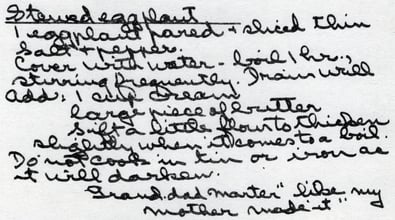 Stewed eggplant
1 eggplant pared + sliced thin
Salt + pepper.
Cover with water - boil 1 hr.,
stirring frequently. Drain well
Add: 1 cup cream
large piece of butter
Sift a little flour to thicken
slightly when it comes to a boil.
Do not cook in tin or iron as
it will darken.
Grand dad marter" like my
mother made it"